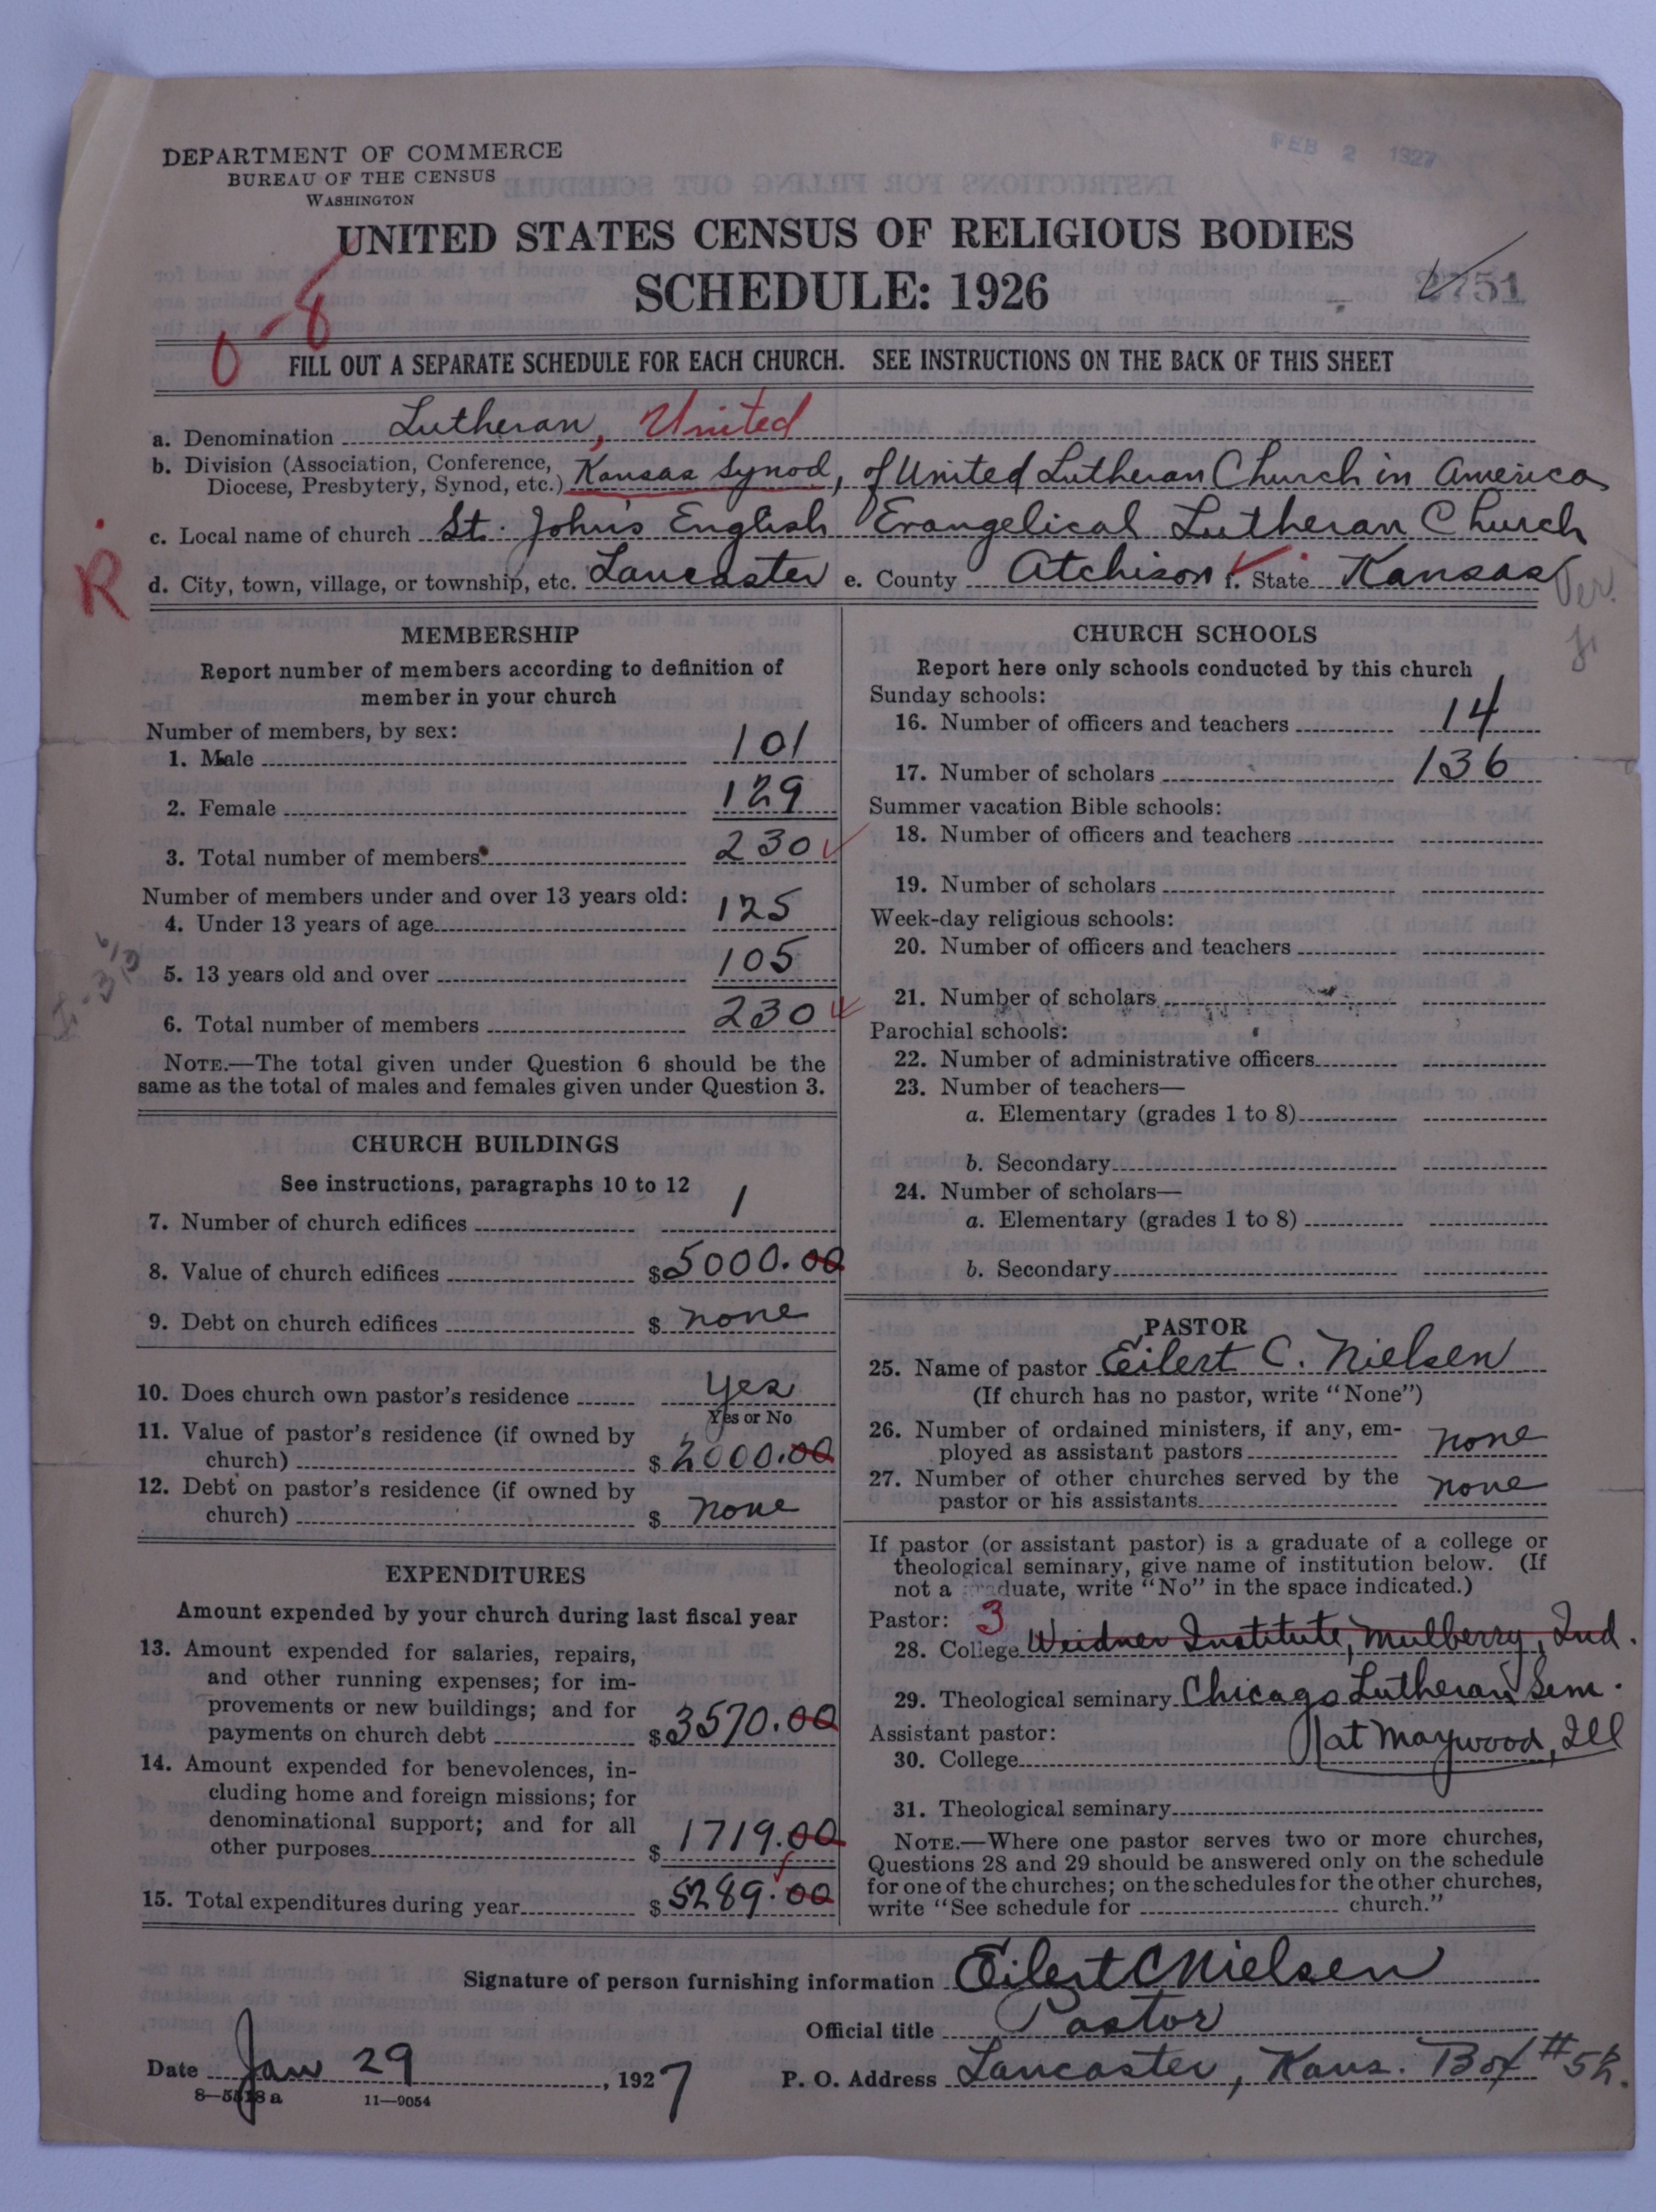 FEB 2 1927
DEPARTMENT OF COMMERCE
BUREAU OF THE CENSUS
WASHINGTON
UNITED STATES CENSUS OF RELIGIOUS BODIES
SCHEDULE: 1926
751
0-8
FILL OUT A SEPARATE SCHEDULE FOR EACH CHURCH. SEE INSTRUCTIONS ON THE BACK OF THIS SHEET
a. Denomination Lutheran, United
b. Division (Association, Conference, Diocese, Presbytery, Synod, etc.) Kansas Synod, of United Lutheran Church in America
c. Local name of church St. John's English Evangelical Lutheran Church
R
d. City, town, village, or township, etc. Lancaster e. County Atchison f. State Kansas
Ver.
MEMBERSHIP
Report number of members according to definition of
member in your church
Number of members, by sex:
1. Male 101
2. Female 129
3. Total number of members 230
Number of members under and over 13 years old:
4. Under 13 years of age 125
5. 13 years old and over 105
6. Total number of members 230
NOTE.—The total given under Question 6 should be the
same as the total of males and females given under Question 3.
CHURCH BUILDINGS
See instructions, paragraphs 10 to 12
7. Number of church edifices 1
8. Value of church edifices $5000.00
9. Debt on church edifices $ none
10. Does church own pastor's residence yes
Yes or No
11. Value of pastor's residence (if owned by
church) $2000.00
12. Debt on pastor's residence (if owned by
church) $ none
EXPENDITURES
Amount expended by your church during last fiscal year
13. Amount expended for salaries, repairs,
and other running expenses; for im-
provements or new buildings; and for
payments on church debt $3570.00
14. Amount expended for benevolences, in-
cluding home and foreign missions; for
denominational support; and for all
other purposes $1719.00
15. Total expenditures during year $5289.00
CHURCH SCHOOLS
Report here only schools conducted by this church
Sunday schools:
16. Number of officers and teachers 14
17. Number of scholars 136
Summer vacation Bible schools:
18. Number of officers and teachers
19. Number of scholars
Week-day religious schools:
20. Number of officers and teachers
21. Number of scholars
Parochial schools:
22. Number of administrative officers
23. Number of teachers—
a. Elementary (grades 1 to 8)
b. Secondary
24. Number of scholars—
a. Elementary (grades 1 to 8)
b. Secondary
PASTOR
25. Name of pastor Eilert C. Nielsen
(If church has no pastor, write "None")
26. Number of ordained ministers, if any, em-
ployed as assistant pastors none
27. Number of other churches served by the
pastor or his assistants none
If pastor (or assistant pastor) is a graduate of a college or
theological seminary, give name of institution below. (If
not a graduate, write "No" in the space indicated.)
Pastor: 3
28. College Weidner Institute, Mulberry, Ind.
29. Theological seminary Chicago Lutheran Sem.
at Maywood, Ill
Assistant pastor:
30. College
31. Theological seminary
NOTE.—Where one pastor serves two or more churches,
Questions 28 and 29 should be answered only on the schedule
for one of the churches; on the schedules for the other churches,
write "See schedule for church."
Signature of person furnishing information Eilert C Nielsen
Official title Pastor
Date Jan 29, 1927 P. O. Address Lancaster, Kans. Box #52.
8—5518 a 11—9054